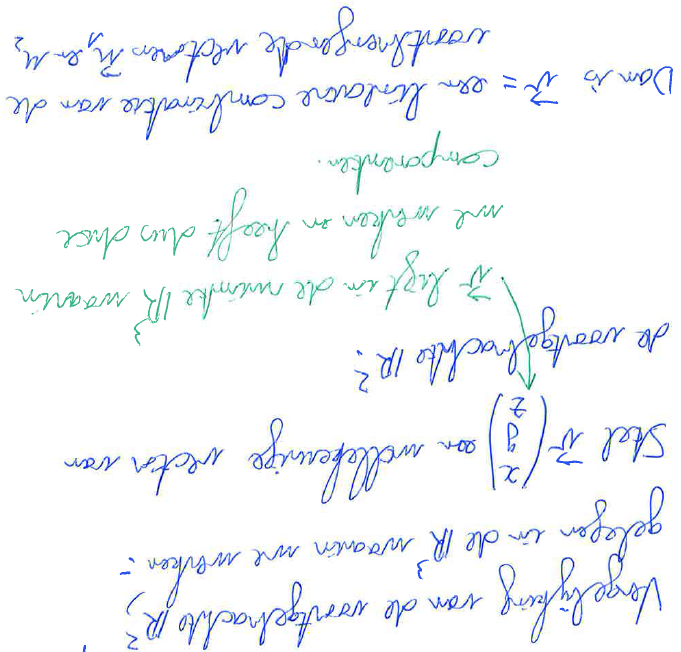 Vergelijking van de voortgebrachte ℝ²,
gelegen in de ℝ³ waarin we werken :
Stel v⃗ (x y z) een willekeurige vector van
de voortgebrachte ℝ².
v⃗ ligt in de ruimte ℝ³ waarin
we werken en heeft dus drie
componenten.
Dan is v⃗ = een lineaire combinatie van de
voortbrengende vectoren u⃗₁ en u⃗₂